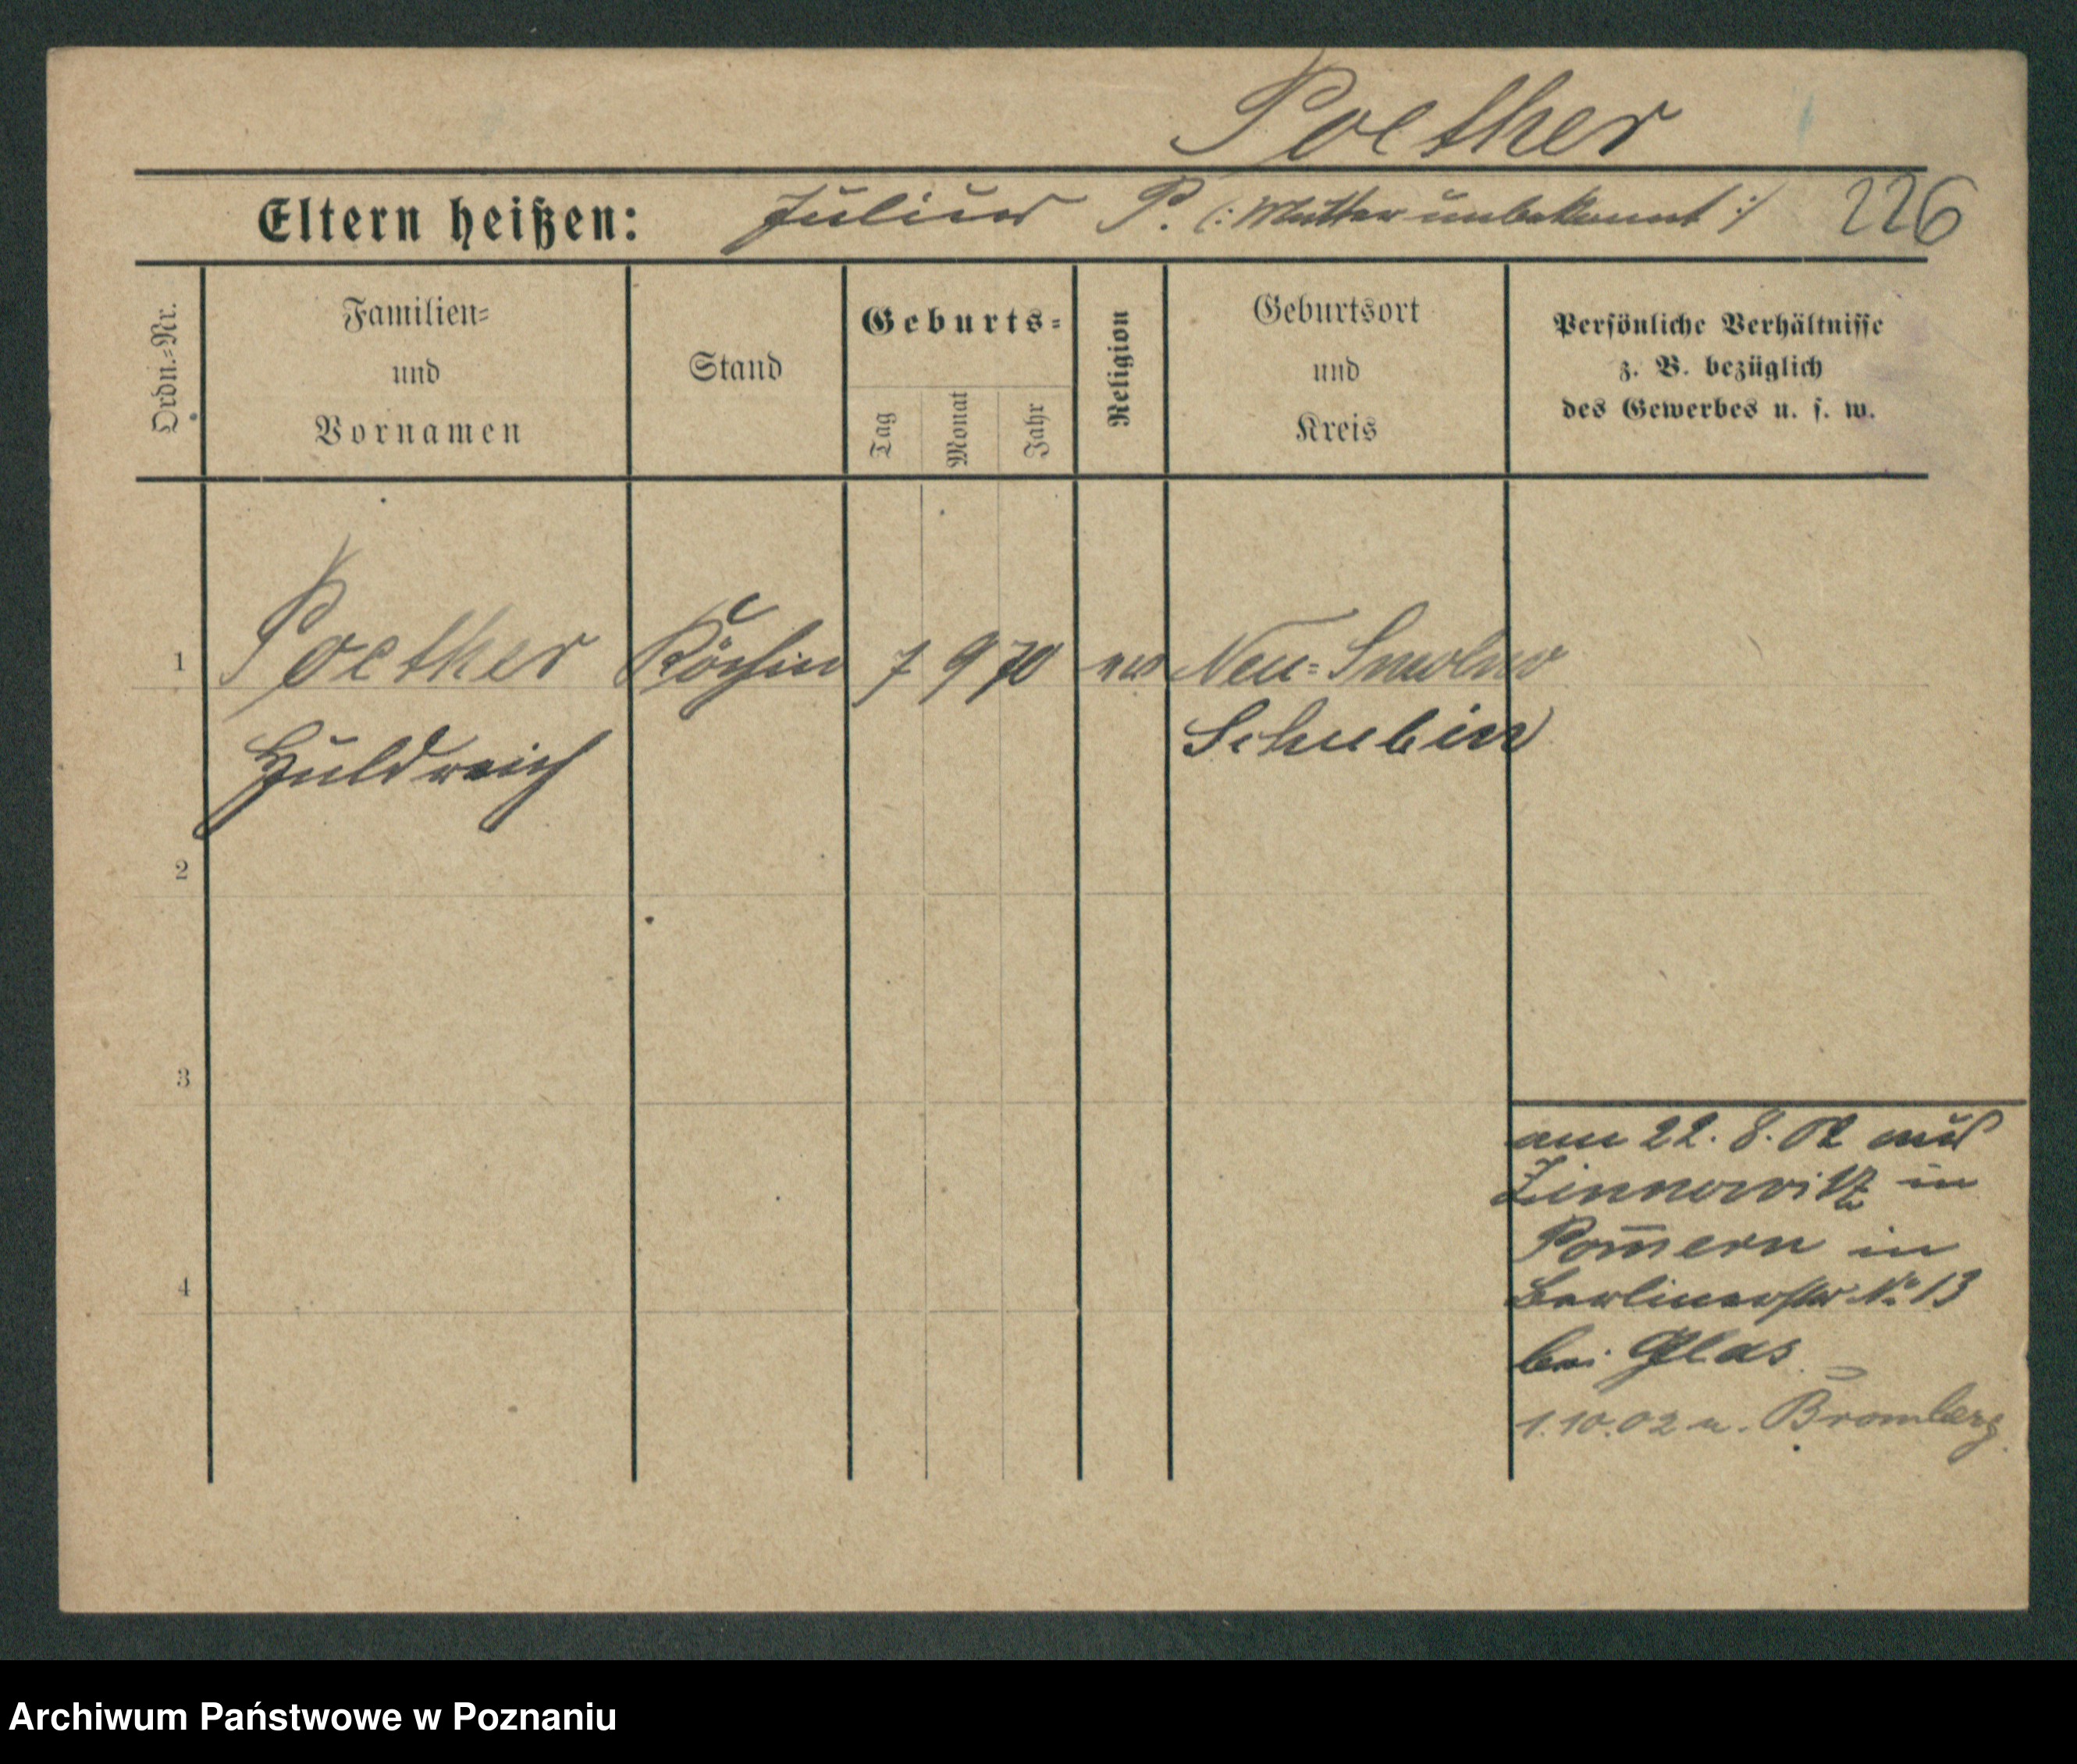 Poether
Eltern heißen: Julius P. (: Mutter unbekannt :) 226
Ordn.-Nr.
Familien-
und
Vornamen
Stand
Geburts-
Tag
Monat
Jahr
Religion
Geburtsort
und
Kreis
Persönliche Verhältnisse
z. B. bezüglich
des Gewerbes u. s. w.
1 Poether Köchin 7 9 70 Neu-Smolno
Huldreich Schubin
2
3
4
am 22. 8. 02 aus
Zinnowitz in
Pom̄ern in
Berlinerstr No 13
bei Glas
1.10.02 n. Bromberg
Archiwum Państwowe w Poznaniu